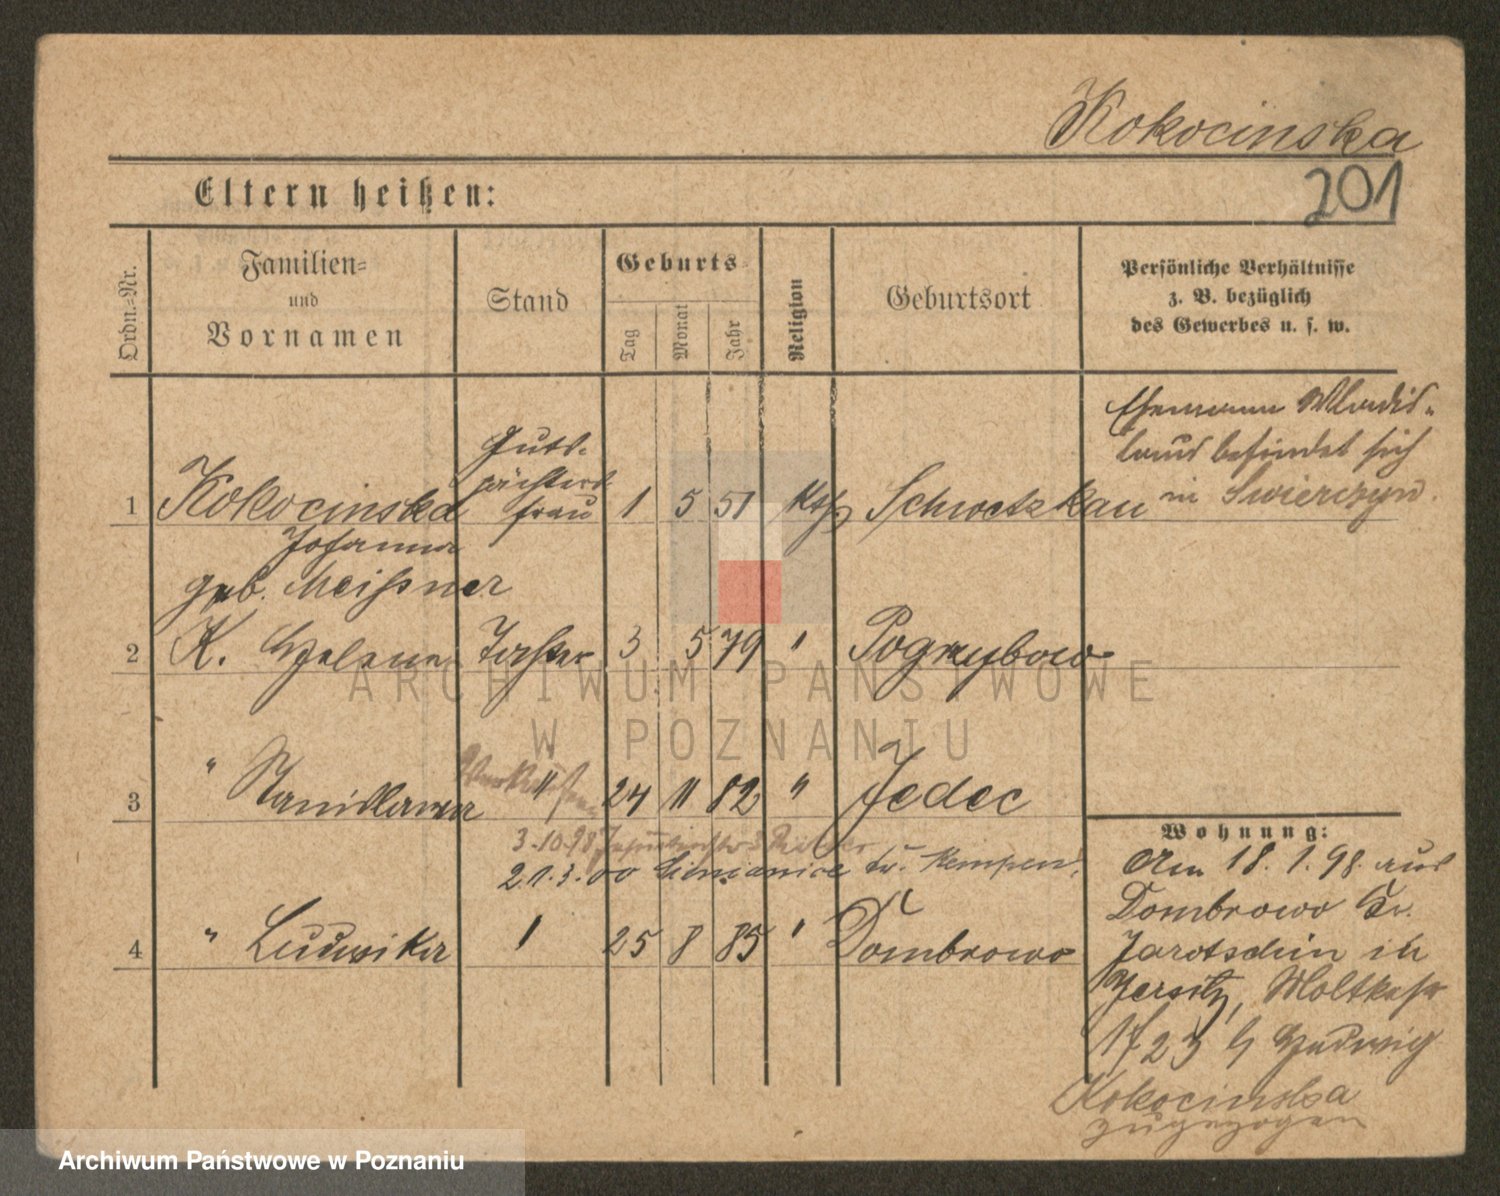 Kokocinska
201
Eltern heißen:
Ordn.=Nr.
Familien=
und
Vornamen
Stand
Geburts=
Tag
Monat
Jahr
Religion
Geburtsort
Persönliche Verhältnisse
z. B. bezüglich
des Gewerbes u. s. w.
Ehemann Wladis-
laus befindet sich
in Swierczyn.
Guts-
pächters
frau
1 Kokocinska 1 5 51 kth Schwetzkau
Johanna
geb. Meißner
2 K. Helene Tochter 3 5 79 " Pogrzybowo
3 " Stanislawa " 24 11 82 " Jedec
3.10.98
21.3.00 Kempen
4 " Ludwika " 25 8 85 " Dombrowo
Wohnung:
Am 18.1.98. aus
Dombrowo Kr.
Jarotschin in
Jersitz, Moltkestr
23 b Hedwig
Kokocinska
zugezogen
ARCHIWUM PAŃSTWOWE
W POZNANIU
Archiwum Państwowe w Poznaniu